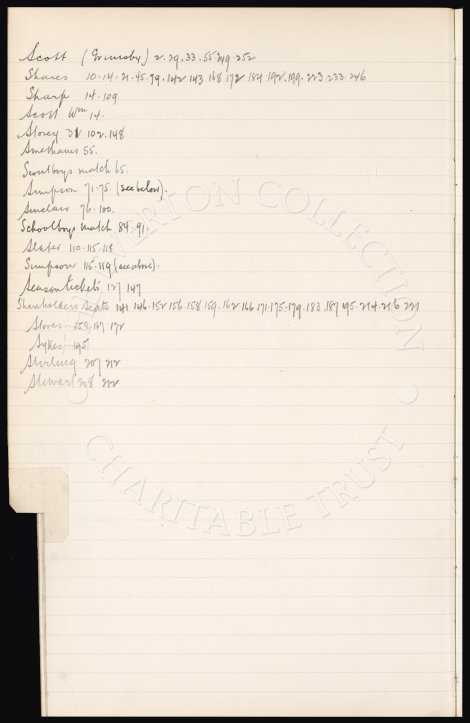 Scott (Grimsby) 2.29.33.55.219.252
Shares 10.14.21.45.79.142 143 168 172 184 192.199.223.233.246
Sharp 14.109
Scott Wm 14.
Storey 31 102.148
55.
match 65.
Simpson 71.75. (see below).
Sinclair 76.100.
Schoolboys match 84.91.
Slater 110.115.118
Simpson 115.119 (see above).
Season tickets 127 147
Shareholders Seats 141 146.152 156.158 159.162 166 171.175.179.183.187 195.214.216 221
Stores 153.167.172
Sykes 195
Stirling 207 212
Stewart 208 212
EVERTON COLLECTION
CHARITABLE TRUST